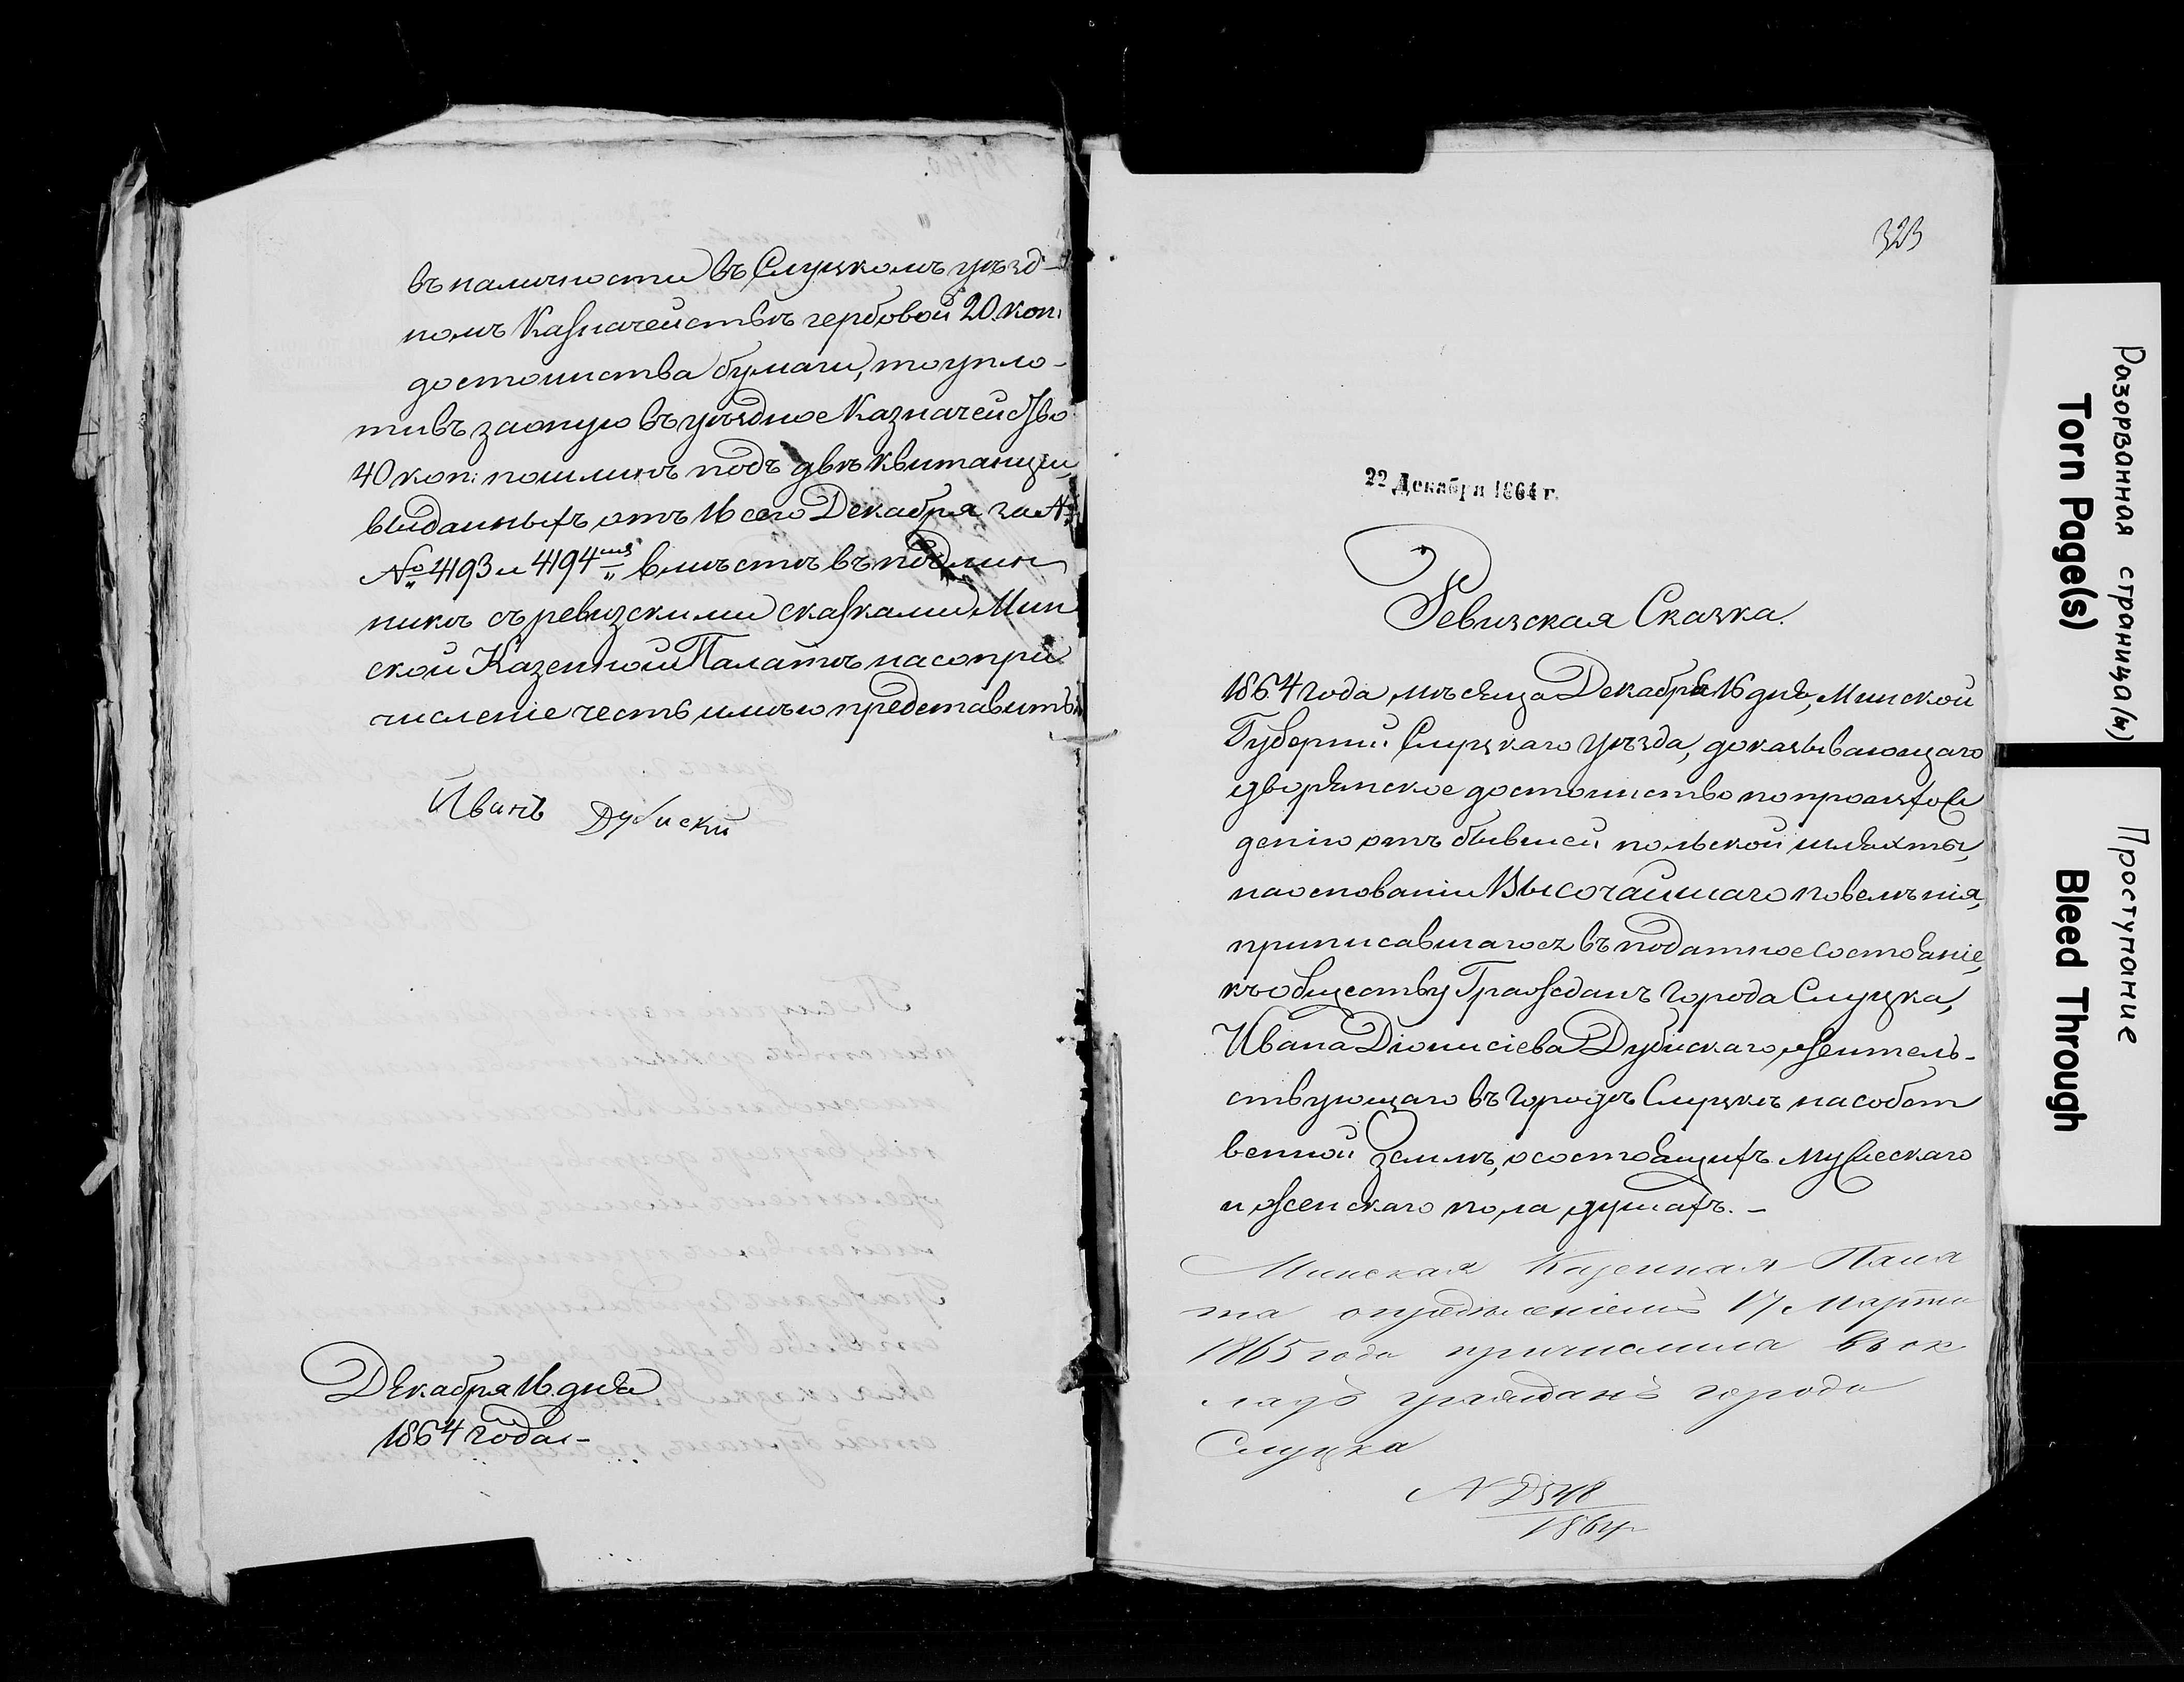 въ наличности въ Слуцкомъ уѣзд-
номъ Казначействѣ гербовой 20 коп.
достоинства бумаги, то упло-
тивъ за оную въ уѣздное Казначейство
40 коп: пошлинъ подъ двѣ квитанціи,
выданныхъ отъ 16 сего Декабря за №
№ 4193 и 4194 вмѣстѣ въ подлин
никѣ съ ревизскими сказками Мин
ской Казенной Палатѣ на сопри
численіе честь имѣю представить
Иванъ Дубискій
Декабря 16 дня
1864 года.-
323
22 Декабря 1864 г.
Ревизская Сказка.
1864 года, мѣсяца Декабря 16 дня, Минской
Губерніи Слуцкаго уѣзда, доказывающаго
дворянское достоинство по происхож
денію отъ бывшей польской шляхты,
на основаніи Высочайшаго повелѣнія,
приписавшагося въ податное состояніе,
къ обществу Гражданъ Города Слуцка,
Ивана Діонисіева Дубискаго, жѝтель-
ствующаго въ Городѣ Слуцкѣ на собст
венной землѣ, о состоящихъ мужескаго
и женскаго пола душахъ. -
Минская Казенная Пала
та опредѣленіемъ 17 Марта
1865 года причислила въ ок
ладъ гражданъ города
Слуцка
N 2548
1864
Разорванная страница/ы)
Torn Page(s)
Проступание
Bleed Through